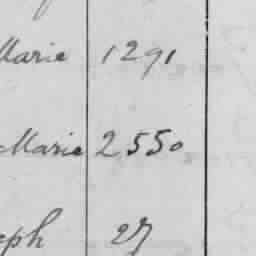 Marie 1291
Marie 2550
eph 27